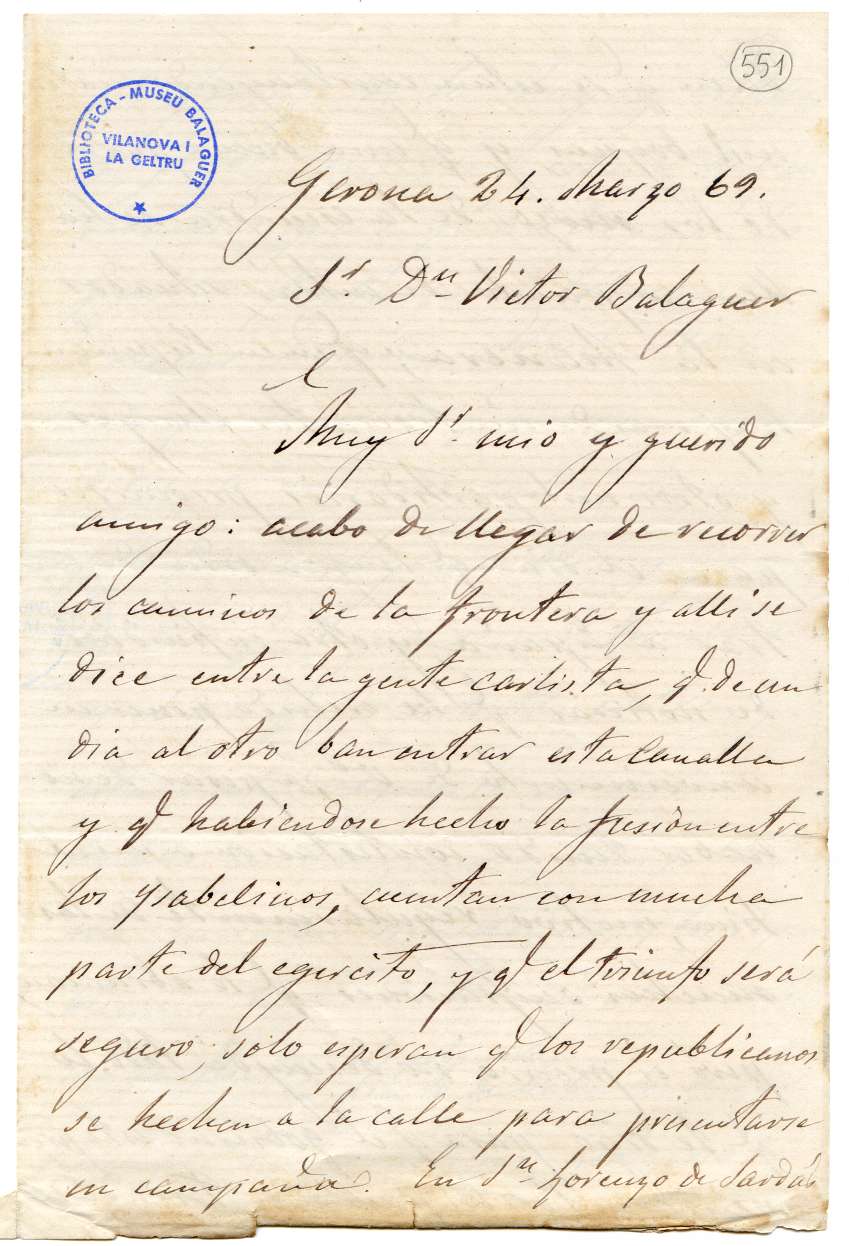 551
BIBLIOTECA - MUSEU BALAGUER
VILANOVA I
LA GELTRU
Gerona 24. Marzo 69.
Sr. Dn Victor Balaguer
Muy Sr. mio y querido
amigo: acabo de llegar de recorrer
los caminos de la frontera y alli se
dice entre la gente carlista, q. de un
dia al otro ban entrar esta canalla
y q. habiendose hecho la fusion entre
los ysabelinos, cuentan con mucha
parte del egercito, y q. el triumfo será
seguro; solo esperan q. los republicanos
se hechen a la calle para presentarse
en campaña. En Sn Lorenzo de